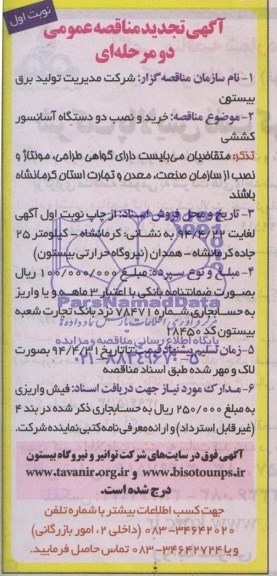 نوبت اول
آگهی تجدید مناقصه عمومی
دو مرحله‌ای
۱- نام سازمان مناقصه گزار: شرکت مدیریت تولید برق
بیستون
۲- موضوع مناقصه: خرید و نصب دو دستگاه آسانسور
کششی
تذکر: متقاضیان می‌بایست دارای گواهی طراحی، مونتاژ و
نصب از سازمان صنعت، معدن و تجارت استان کرمانشاه
باشند
۳- تاریخ و محل فروش اسناد: از چاپ نوبت اول آگهی
لغایت ۹۴/۴/۲۲ به نشانی: کرمانشاه - کیلومتر ۲۵
جاده کرمانشاه - همدان (نیروگاه حرارتی بیستون)
۴- مبلغ و نوع سپرده: مبلغ ۱۰۰/۰۰۰/۰۰۰ ریال
بصورت ضمانتنامه بانکی با اعتبار ۳ ماهه و یا واریز
به حسابجاری شماره ۷۸۴۷۱ نزد بانک تجارت شعبه
بیستون کد ۲۸۴۵۰
۵- زمان تسلیم پیشنهاد قیمت: تا تاریخ ۹۴/۴/۳۱ بصورت
لاک و مهر شده طبق اسناد مناقصه
۶- مدارک مورد نیاز جهت دریافت اسناد: فیش واریزی
به مبلغ ۲۵۰/۰۰۰ ریال به حسابجاری ذکر شده در بند ۴
(غیر قابل استرداد) و ارائه معرفی نامه کتبی نماینده شرکت.
آگهی فوق در سایت‌های شرکت توانیر و نیروگاه بیستون
www.tavanir.org.ir و www.bisotounps.ir
درج شده است.
جهت کسب اطلاعات بیشتر با شماره تلفن
۰۸۳-۳۴۶۴۲۰۲۰ (داخلی ۲، امور بازرگانی)
و یا ۰۸۳-۳۴۶۴۲۷۲۴ تماس حاصل فرمایید.
ParsNamadData
پایگاه اطلاع رسانی مناقصه و مزایده